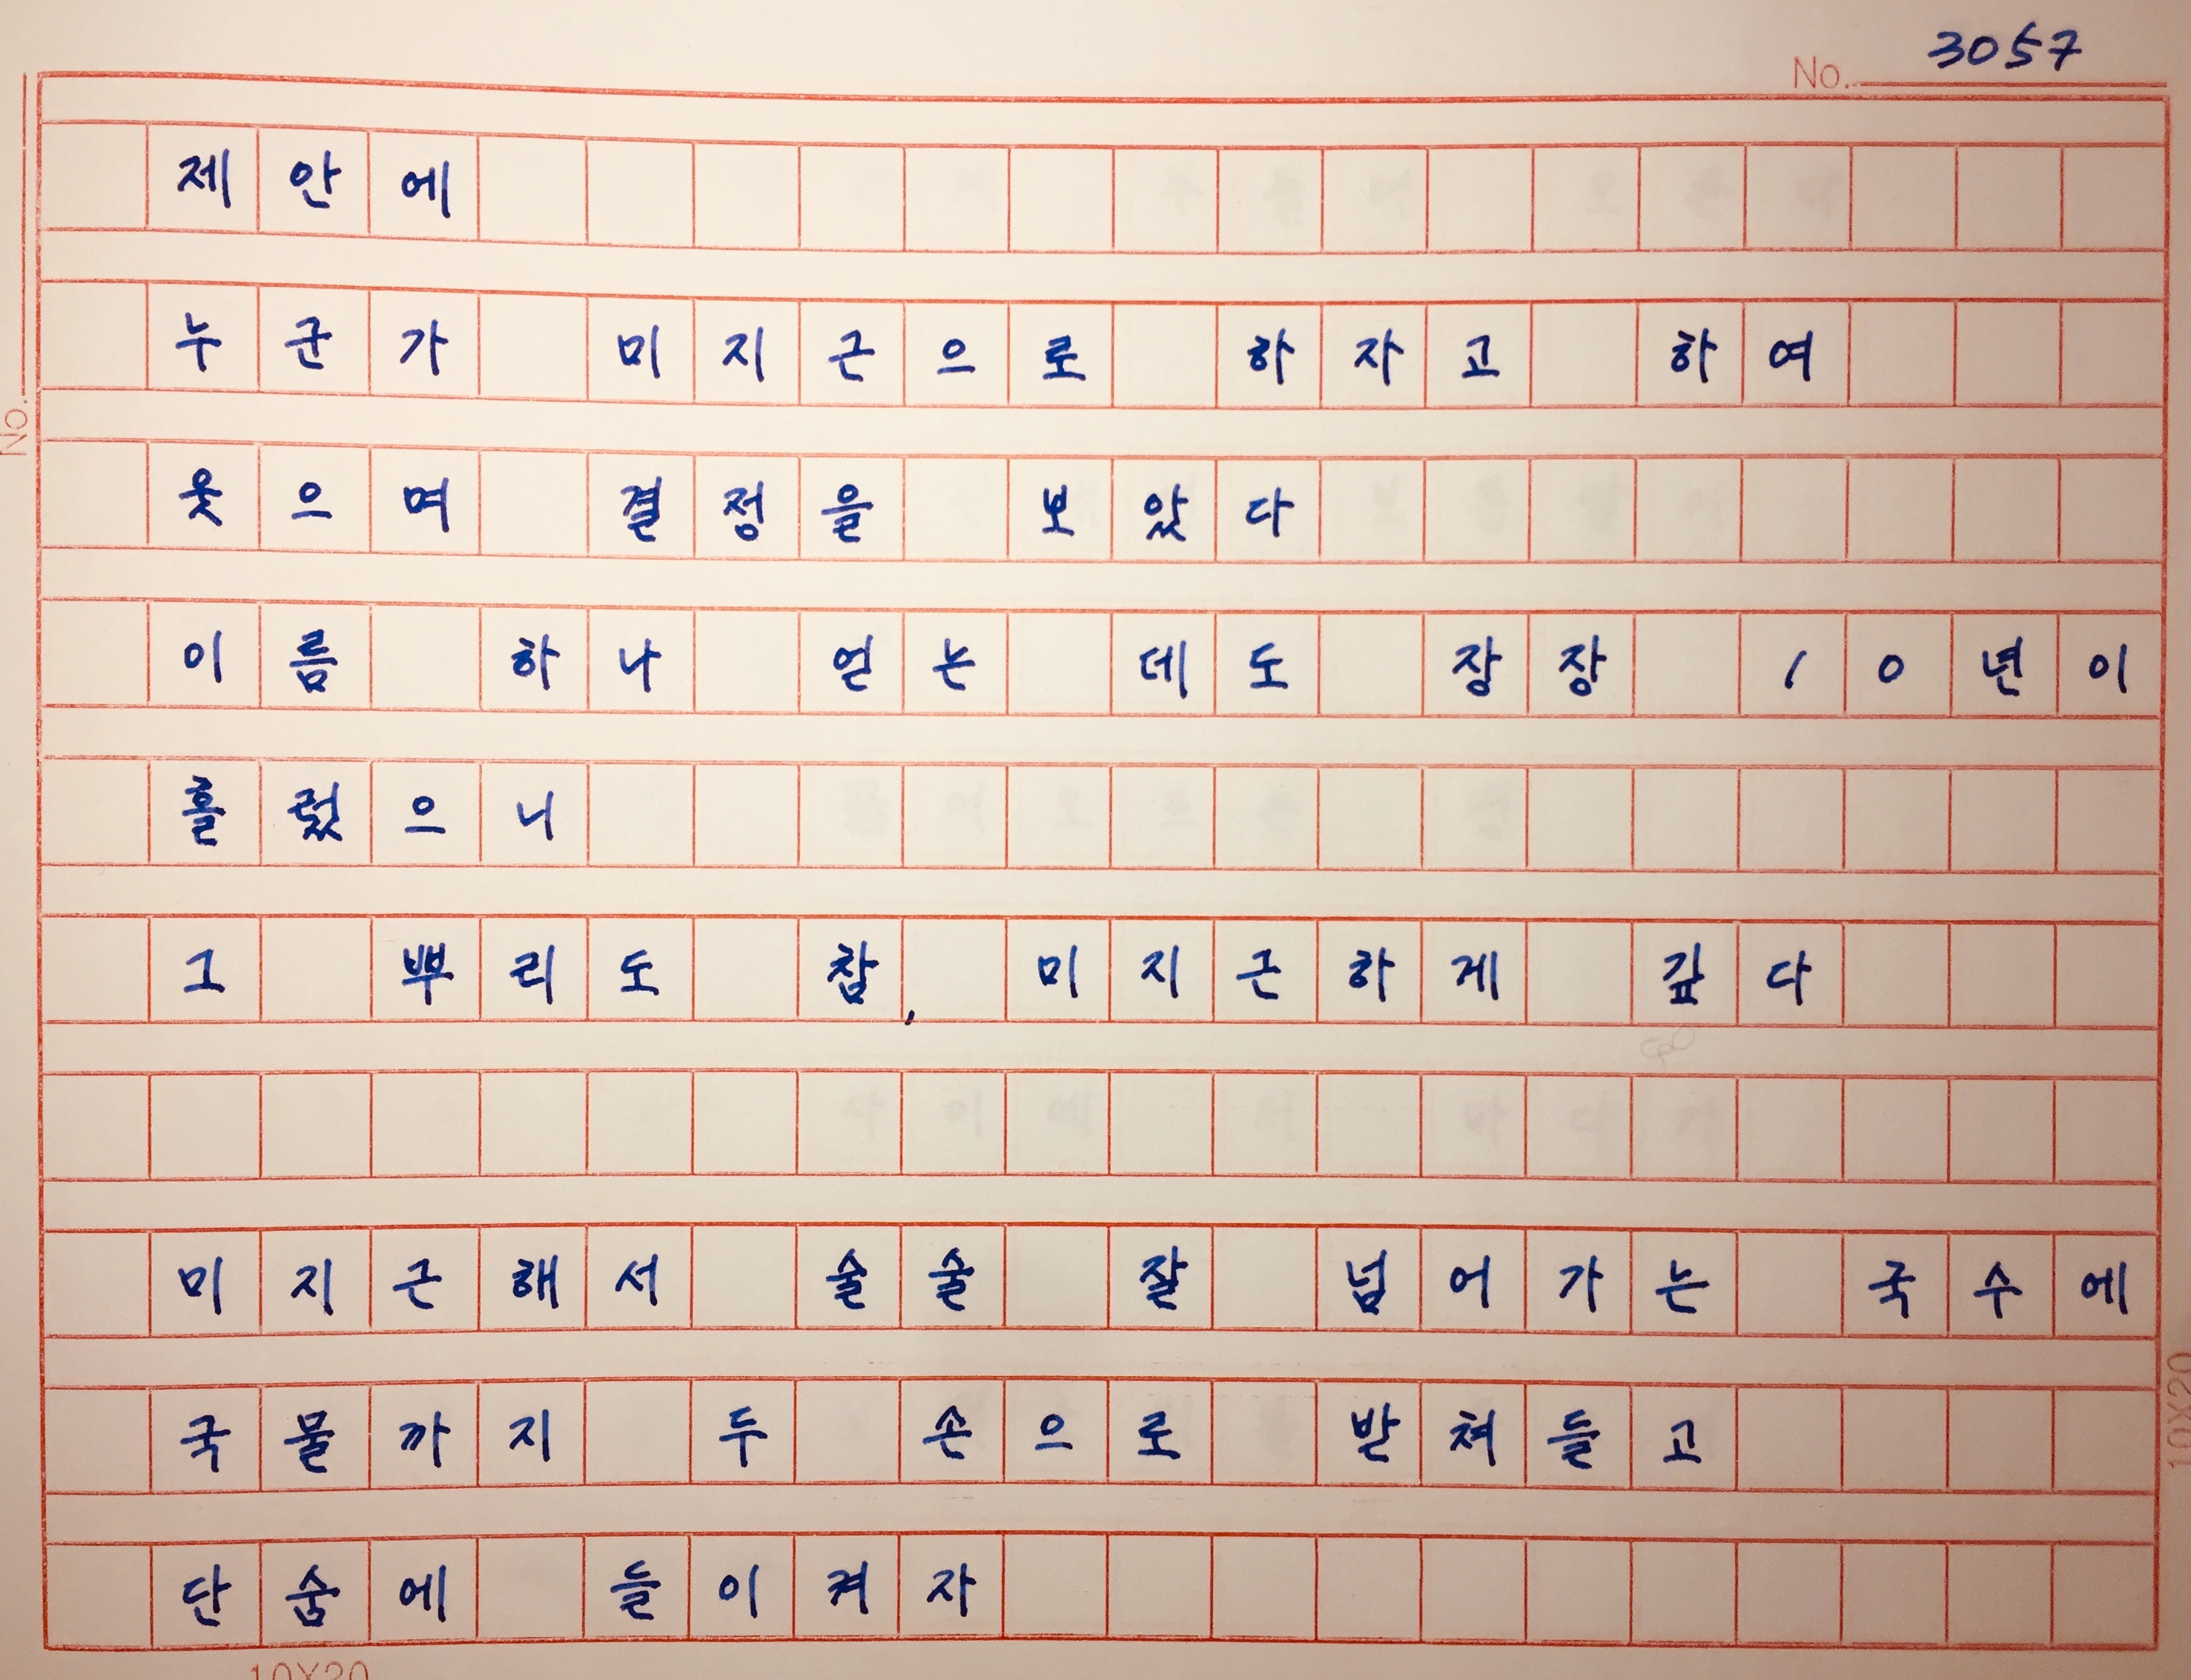 3057
No.
제안에
누군가 미지근으로 하자고 하여
웃으며 결정을 보았다
이름 하나 얻는 데도 장장 10년이
No.
흘렀으니
그 뿌리도 참, 미지근하게 깊다
미지근해서 술술 잘 넘어가는 국수에
국물까지 두 손으로 받쳐들고
10X20
단숨에 들이켜자
10X20